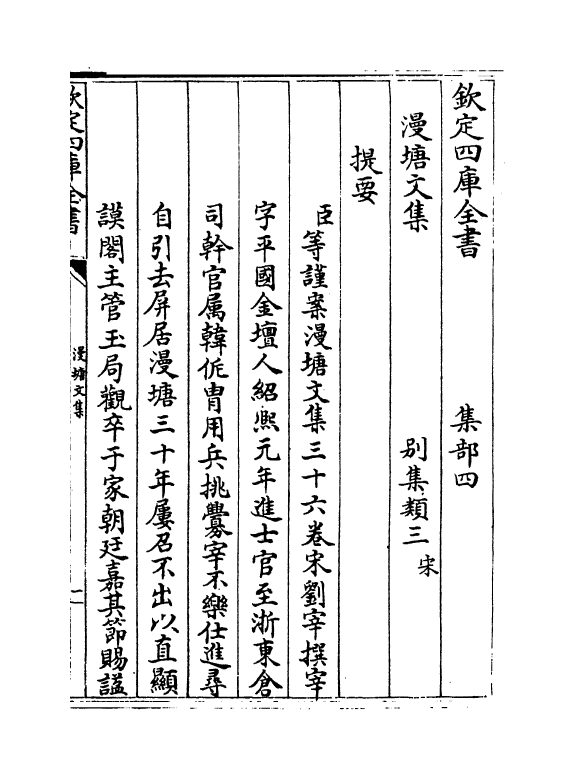 欽定四庫全書　集部四
漫塘文集　別集類三宋
提要
臣等謹案漫塘文集三十六卷宋劉宰撰宰
字平國金壇人紹熙元年進士官至浙東倉
司幹官属韓侂胄用兵挑釁宰不樂仕進尋
自引去屏居漫塘三十年屢召不出以直顯
謨閣主管玉局觀卒于家朝廷嘉其節賜諡
欽定四庫全書
漫塘文集
一